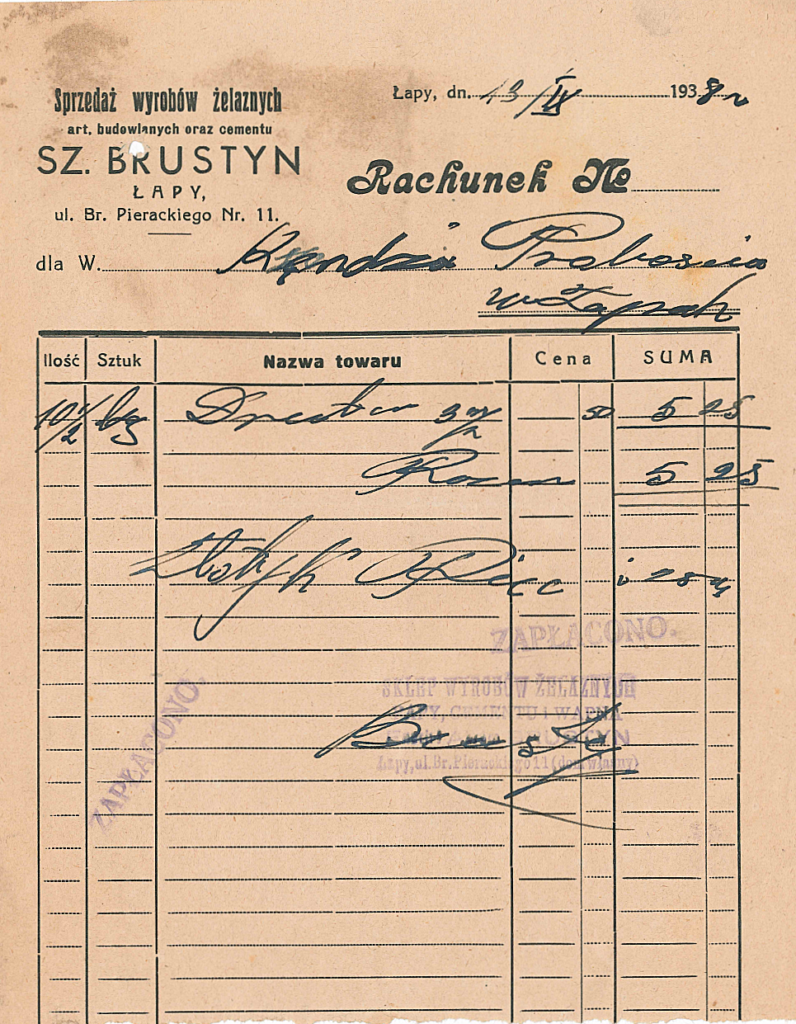 Sprzedaż wyrobów żelaznych
art. budowlanych oraz cementu
SZ. BRUSTYN
ŁAPY,
ul. Br. Pierackiego Nr. 11.
Łapy, dn. 13/IX 1938 r
Rachunek №
dla W. Kendza Proboscia
w Łapah
Ilość Sztuk Nazwa towaru Cena SUMA
10 1/2 kg 50 5 25
Razem 5 25
Złotyh Pięc i 25
ZAPŁACONO.
ZAPŁACONO.
SKLEP WYROBÓW ŻELAZNYCH
CEMENTU i WAPNA
BRUSTYN
Łapy, ul. Br. Pierackiego 11 (dom własny)